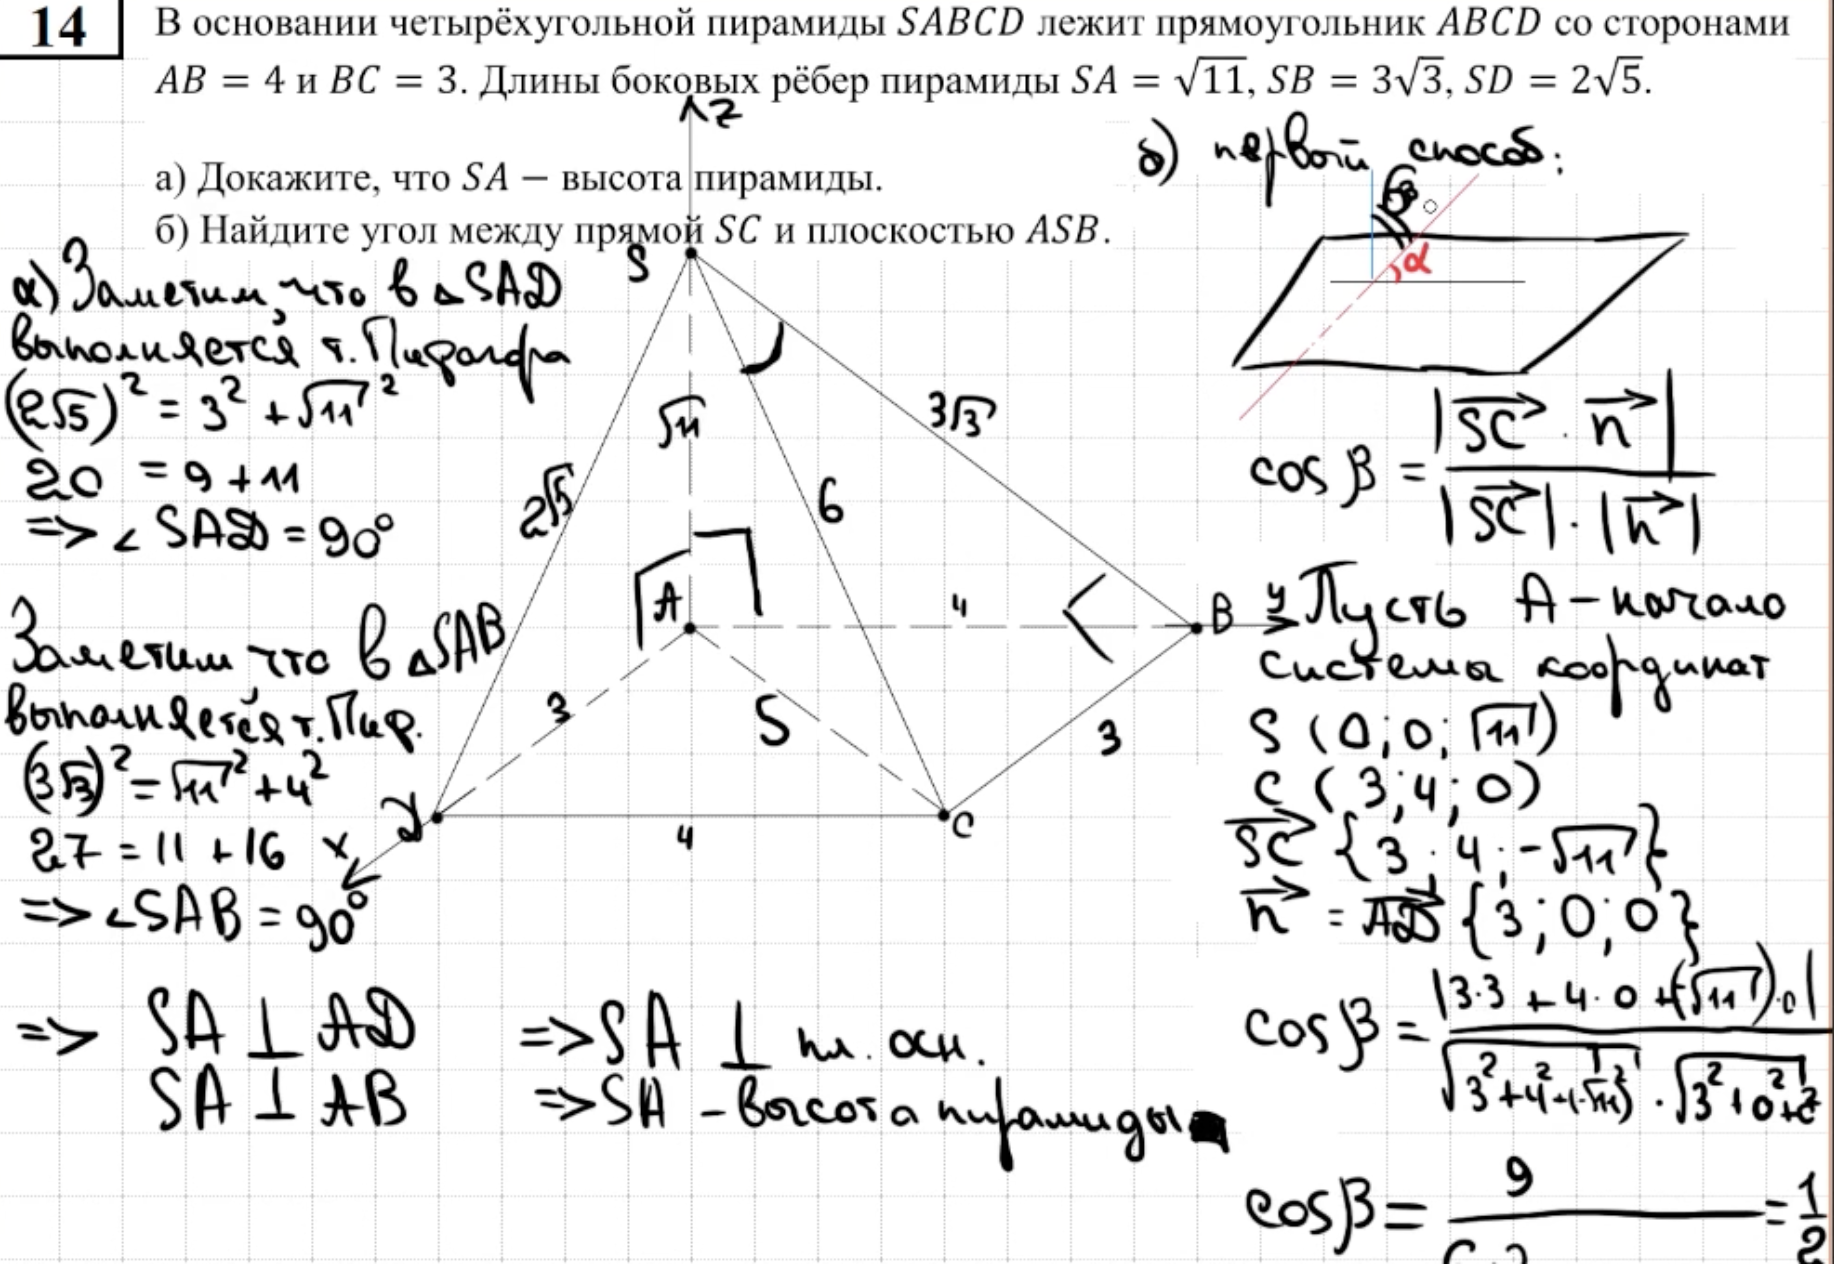 14
В основании четырёхугольной пирамиды SABCD лежит прямоугольник ABCD со сторонами
AB = 4 и BC = 3. Длины боковых рёбер пирамиды SA = √11, SB = 3√3, SD = 2√5.
а) Докажите, что SA – высота пирамиды.
б) Найдите угол между прямой SC и плоскостью ASB.
а) Заметим, что в △SAD
выполняется т. Пифагора
(2√5)² = 3² + √11²
20 = 9 + 11
=> ∠ SAD = 90°
Заметим что в △SAB
выполняется т. Пиф.
(3√3)² = √11² + 4²
27 = 11 + 16
=> ∠SAB = 90°
=> SA ⊥ AD
SA ⊥ AB
=> SA ⊥ пл. осн.
=> SA – высота пирамиды
z
S
√11
3√3
2√5
6
A
4
B
y
3
5
3
D
x
4
C
б) первый способ:
α
cos β = |SC⃗ · n⃗| / |SC⃗| · |n⃗|
Пусть A – начало
системы координат
S (0; 0; √11)
C (3; 4; 0)
SC⃗ {3; 4; -√11}
n⃗ = AD⃗ {3; 0; 0}
cos β = |3·3 + 4·0 + (-√11)·0| / √3²+4²+(-√11)² · √3²+0²+0²
cos β = 9 / 6·3 = 1/2